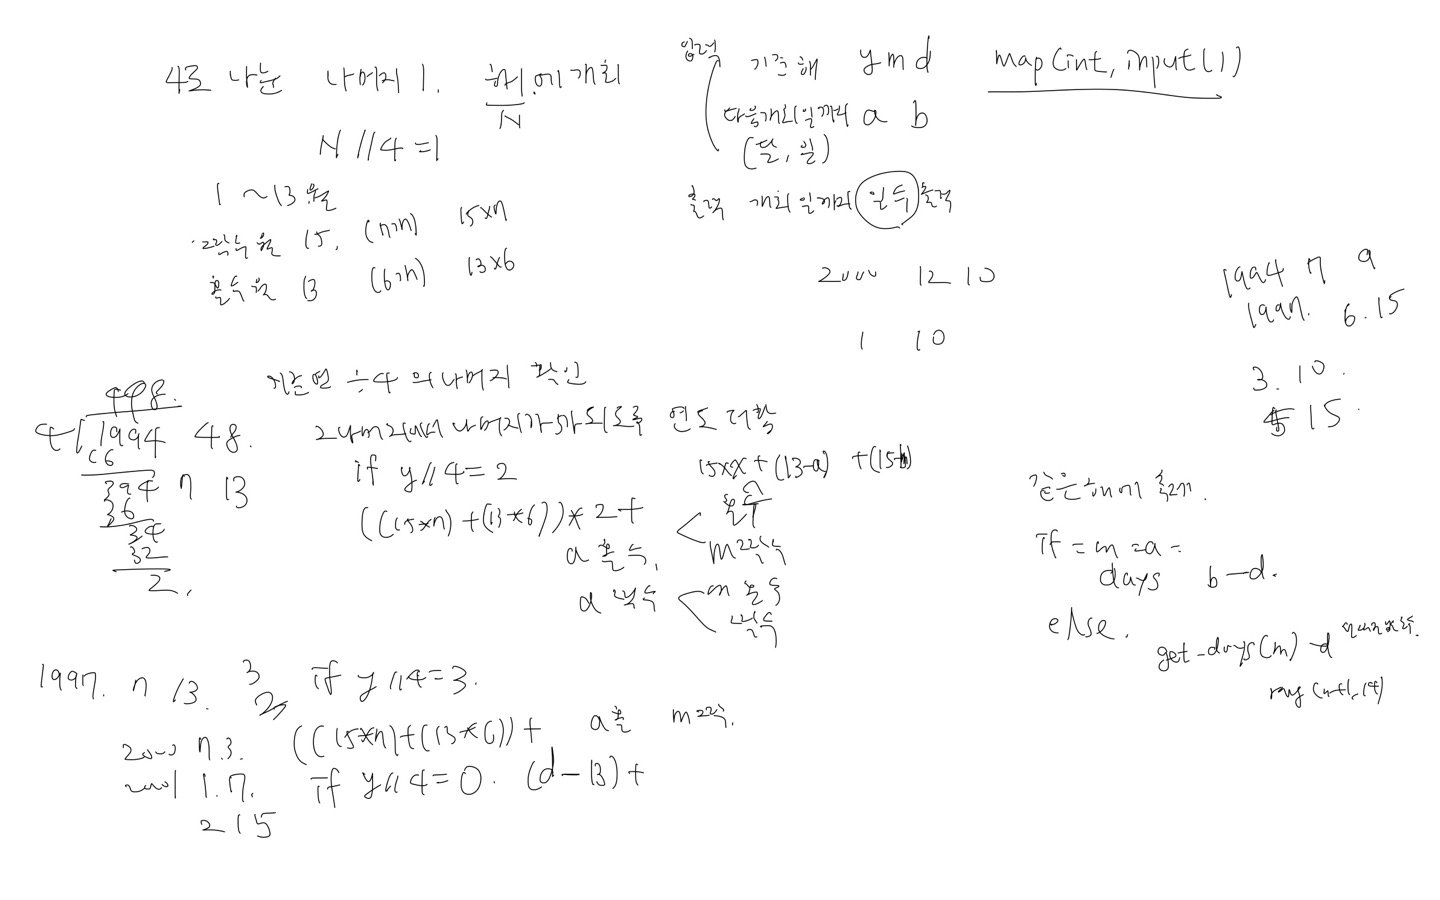 4로 나눈 나머지 1. 해에 개최
N
N // 4 = 1
1 ~ 13월
짝수월 15, (7개) 15×7
홀수월 13 (6개) 13×6
입력 기준해 y m d map(int, input())
다음개최일까지 a b
(달, 일)
출력 개최일까지 일수 출력
2000 12 10
1 10
1994 7 9
1997. 6.15
3. 10.
15.
기준연 ÷4 의 나머지 확인
498.
4 1994 48.
394 7 13
36
34
32
2.
그 나머지에서 나머지가 되도록 연도 더함
if y // 4 = 2
((15*7) + (13*6)) * 2 +
15×x + (13-a) + (15-b)
홀수
a 홀수, m짝수
a 짝수 m 홀수
짝수
같은해에 출력.
if = m = a =
days b-d.
else.
get-days(m) - d
1997. 7 13. 3
2
if y // 4 = 3.
2000 7.3. ((15*7)+(13*6)) + a홀 m짝.
2001 1.7. if y // 4 = 0. (d-13)+
2 15